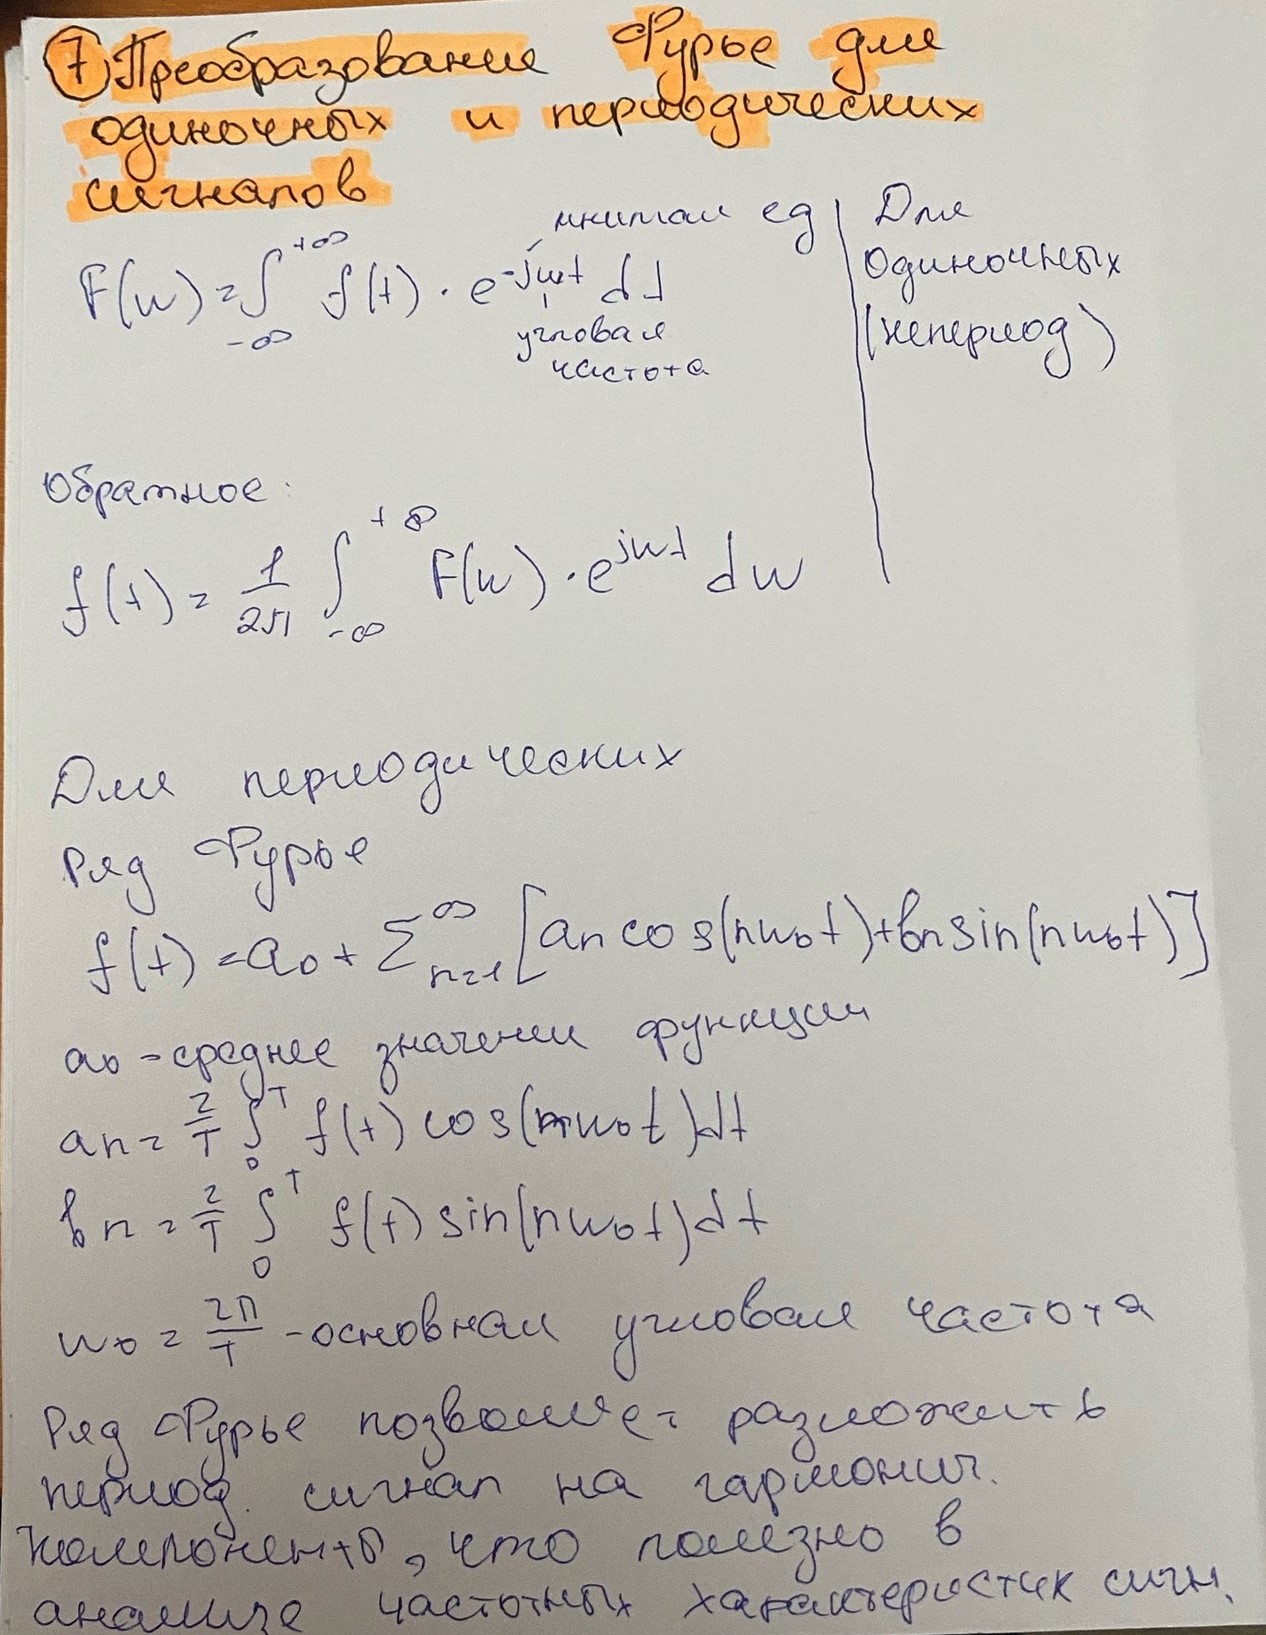 7) Преобразование Фурье для
одиночных и периодических
сигналов
мнимая ед
F(w) = ∫_{-∞}^{+∞} f(t) · e^{-jwt} dt
угловая
частота
Для
одиночных
(непериод)
Обратное:
f(t) = \frac{1}{2π} ∫_{-∞}^{+∞} F(w) · e^{jwt} dw
Для периодических
Ряд Фурье
f(t) = a₀ + Σ_{n=1}^{∞} [an cos(nw₀t) + bn sin(nw₀t)]
a₀ - среднее значение функции
an = \frac{2}{T} ∫_{0}^{T} f(t) cos(nw₀t) dt
bn = \frac{2}{T} ∫_{0}^{T} f(t) sin(nw₀t) dt
w₀ = \frac{2π}{T} - основная угловая частота
Ряд Фурье позволяет разложить
период. сигнал на гармонич.
компоненты, что полезно в
анализе частотных характеристик сигн.